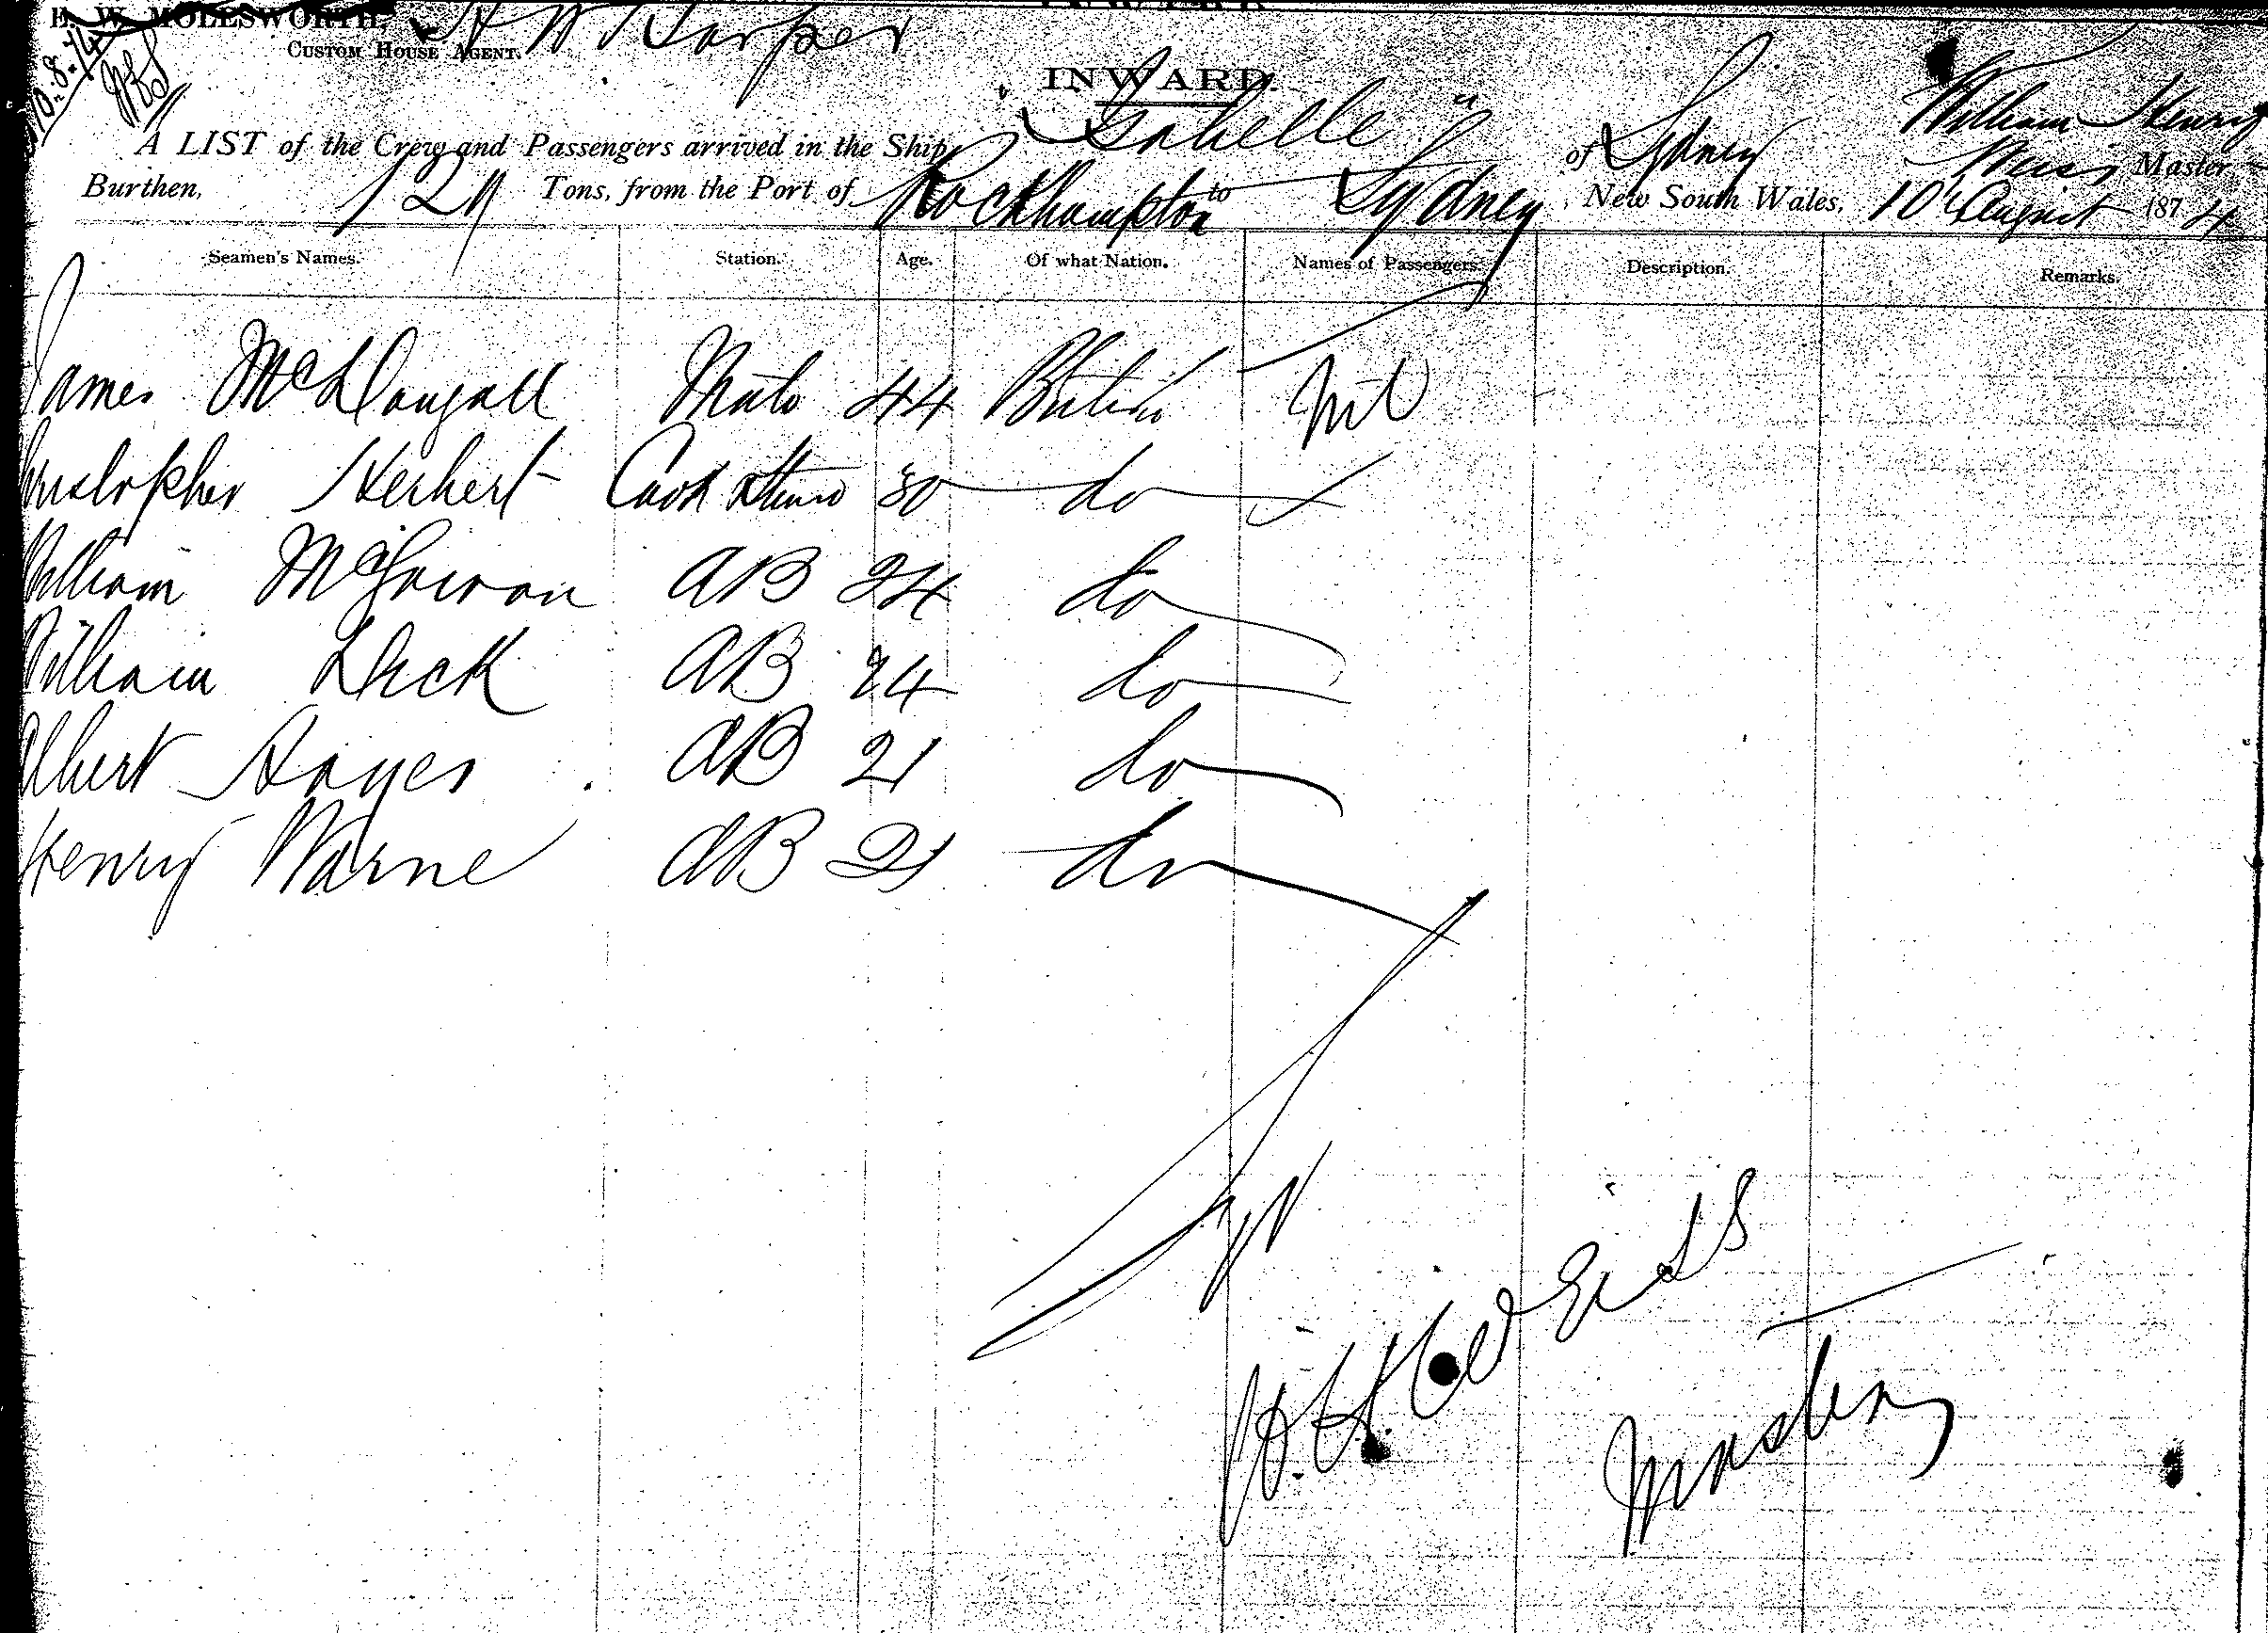 E. W. MOLLESWORTH W Harper
CUSTOM HOUSE AGENT.
10.8.74
INWARD.
A LIST of the Crew and Passengers arrived in the Ship "Isabelle" of Sydney William Henry Master,
Burthen, 124 Tons, from the Port of Rockhampton to Sydney New South Wales, 10th August 1874
Seamen's Names. Station. Age. Of what Nation. Names of Passengers. Description. Remarks.
James McDougall Mate 44 British Nil
Christopher Herbert Cook & Steward 30 do
William McGowan AB 24 do
William Dick AB 24 do
Albert Hayes AB 21 do
Henry Warne AB 21 do
W. H.
Master